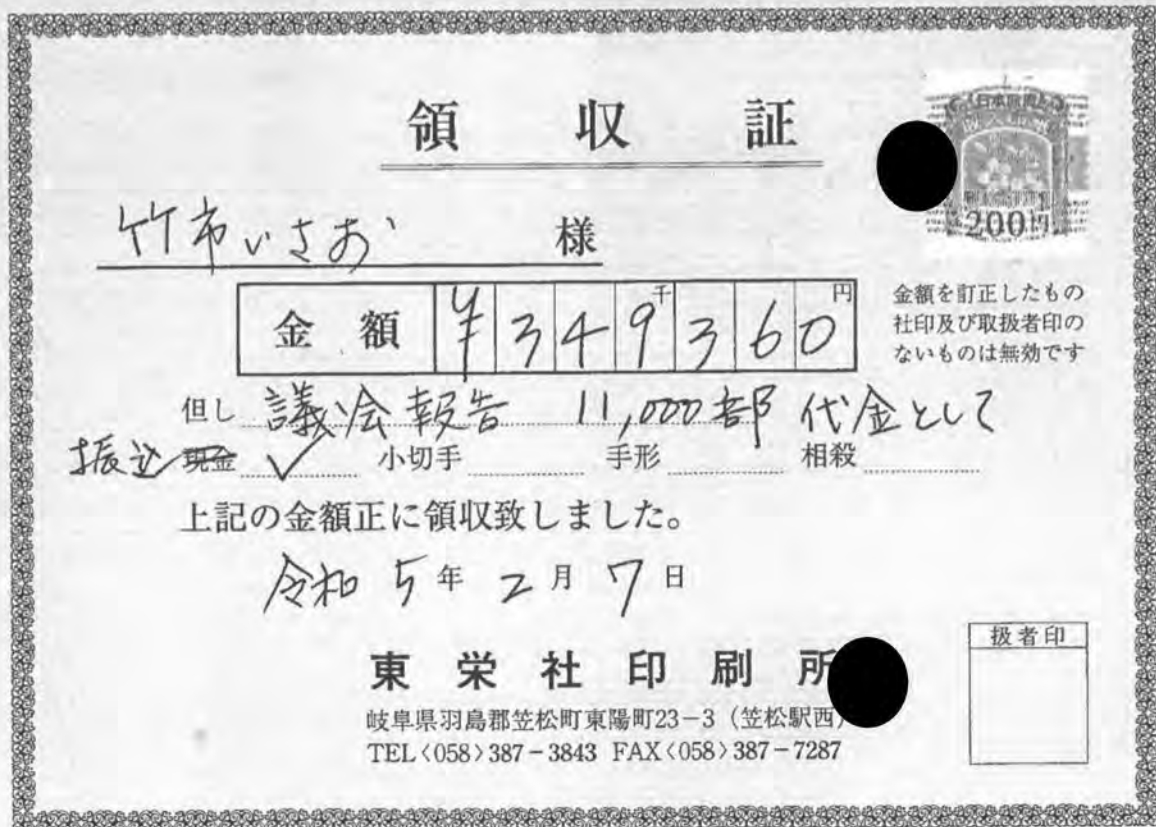 領収証
竹市いさお 様
200円
金額 ¥349360
千 円
金額を訂正したもの
社印及び取扱者印の
ないものは無効です
但し 議会報告 11,000部 代金として
振込 現金 ✓ 小切手 手形 相殺
上記の金額正に領収致しました。
令和5年2月7日
扱者印
東栄社印刷所
岐阜県羽島郡笠松町東陽町23-3(笠松駅西)
TEL<058>387-3843 FAX<058>387-7287